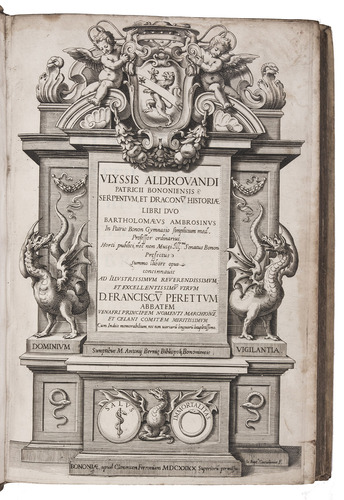 VLYSSIS ALDROVANDI
PATRICII BONONIENSIS
SERPENTVM, ET DRACONV̄ HISTORIÆ
LIBRI DVO
BARTHOLOMÆVS AMBROSINVS
In Patrio Bonon Gymnasio Simplicium med.
Professor ordinarius
Horti publici, nec non Musei Senatus Bonon
Prefectus
summo labore opus
concinnauit
AD ILLVSTRISSIMVM REVERENDISSIMVM
ET EXCELLENTISSIMV̄ VIRVM
D. FRANCISCV̄ PERETTVM
ABBATEM
VENAFRI PRINCIPEM NOMENTI MARCHIONĒ
ET CELANI COMITEM MERITISSIMVM
Cum Indice memorabilium nec non variarum linguarum locupletissimo.
DOMINIVM
Sumptibus M. Antonij Berniæ Bibliopolæ Bononiensis
VIGILANTIA
SALVS
IMMORTALITAS
BONONIÆ, apud Clementem Ferronium MDCXXXX Superiorū permissu